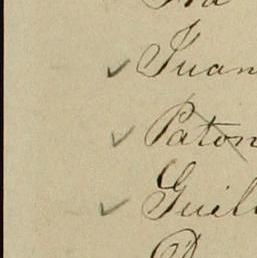 Juan
Paton
Guill